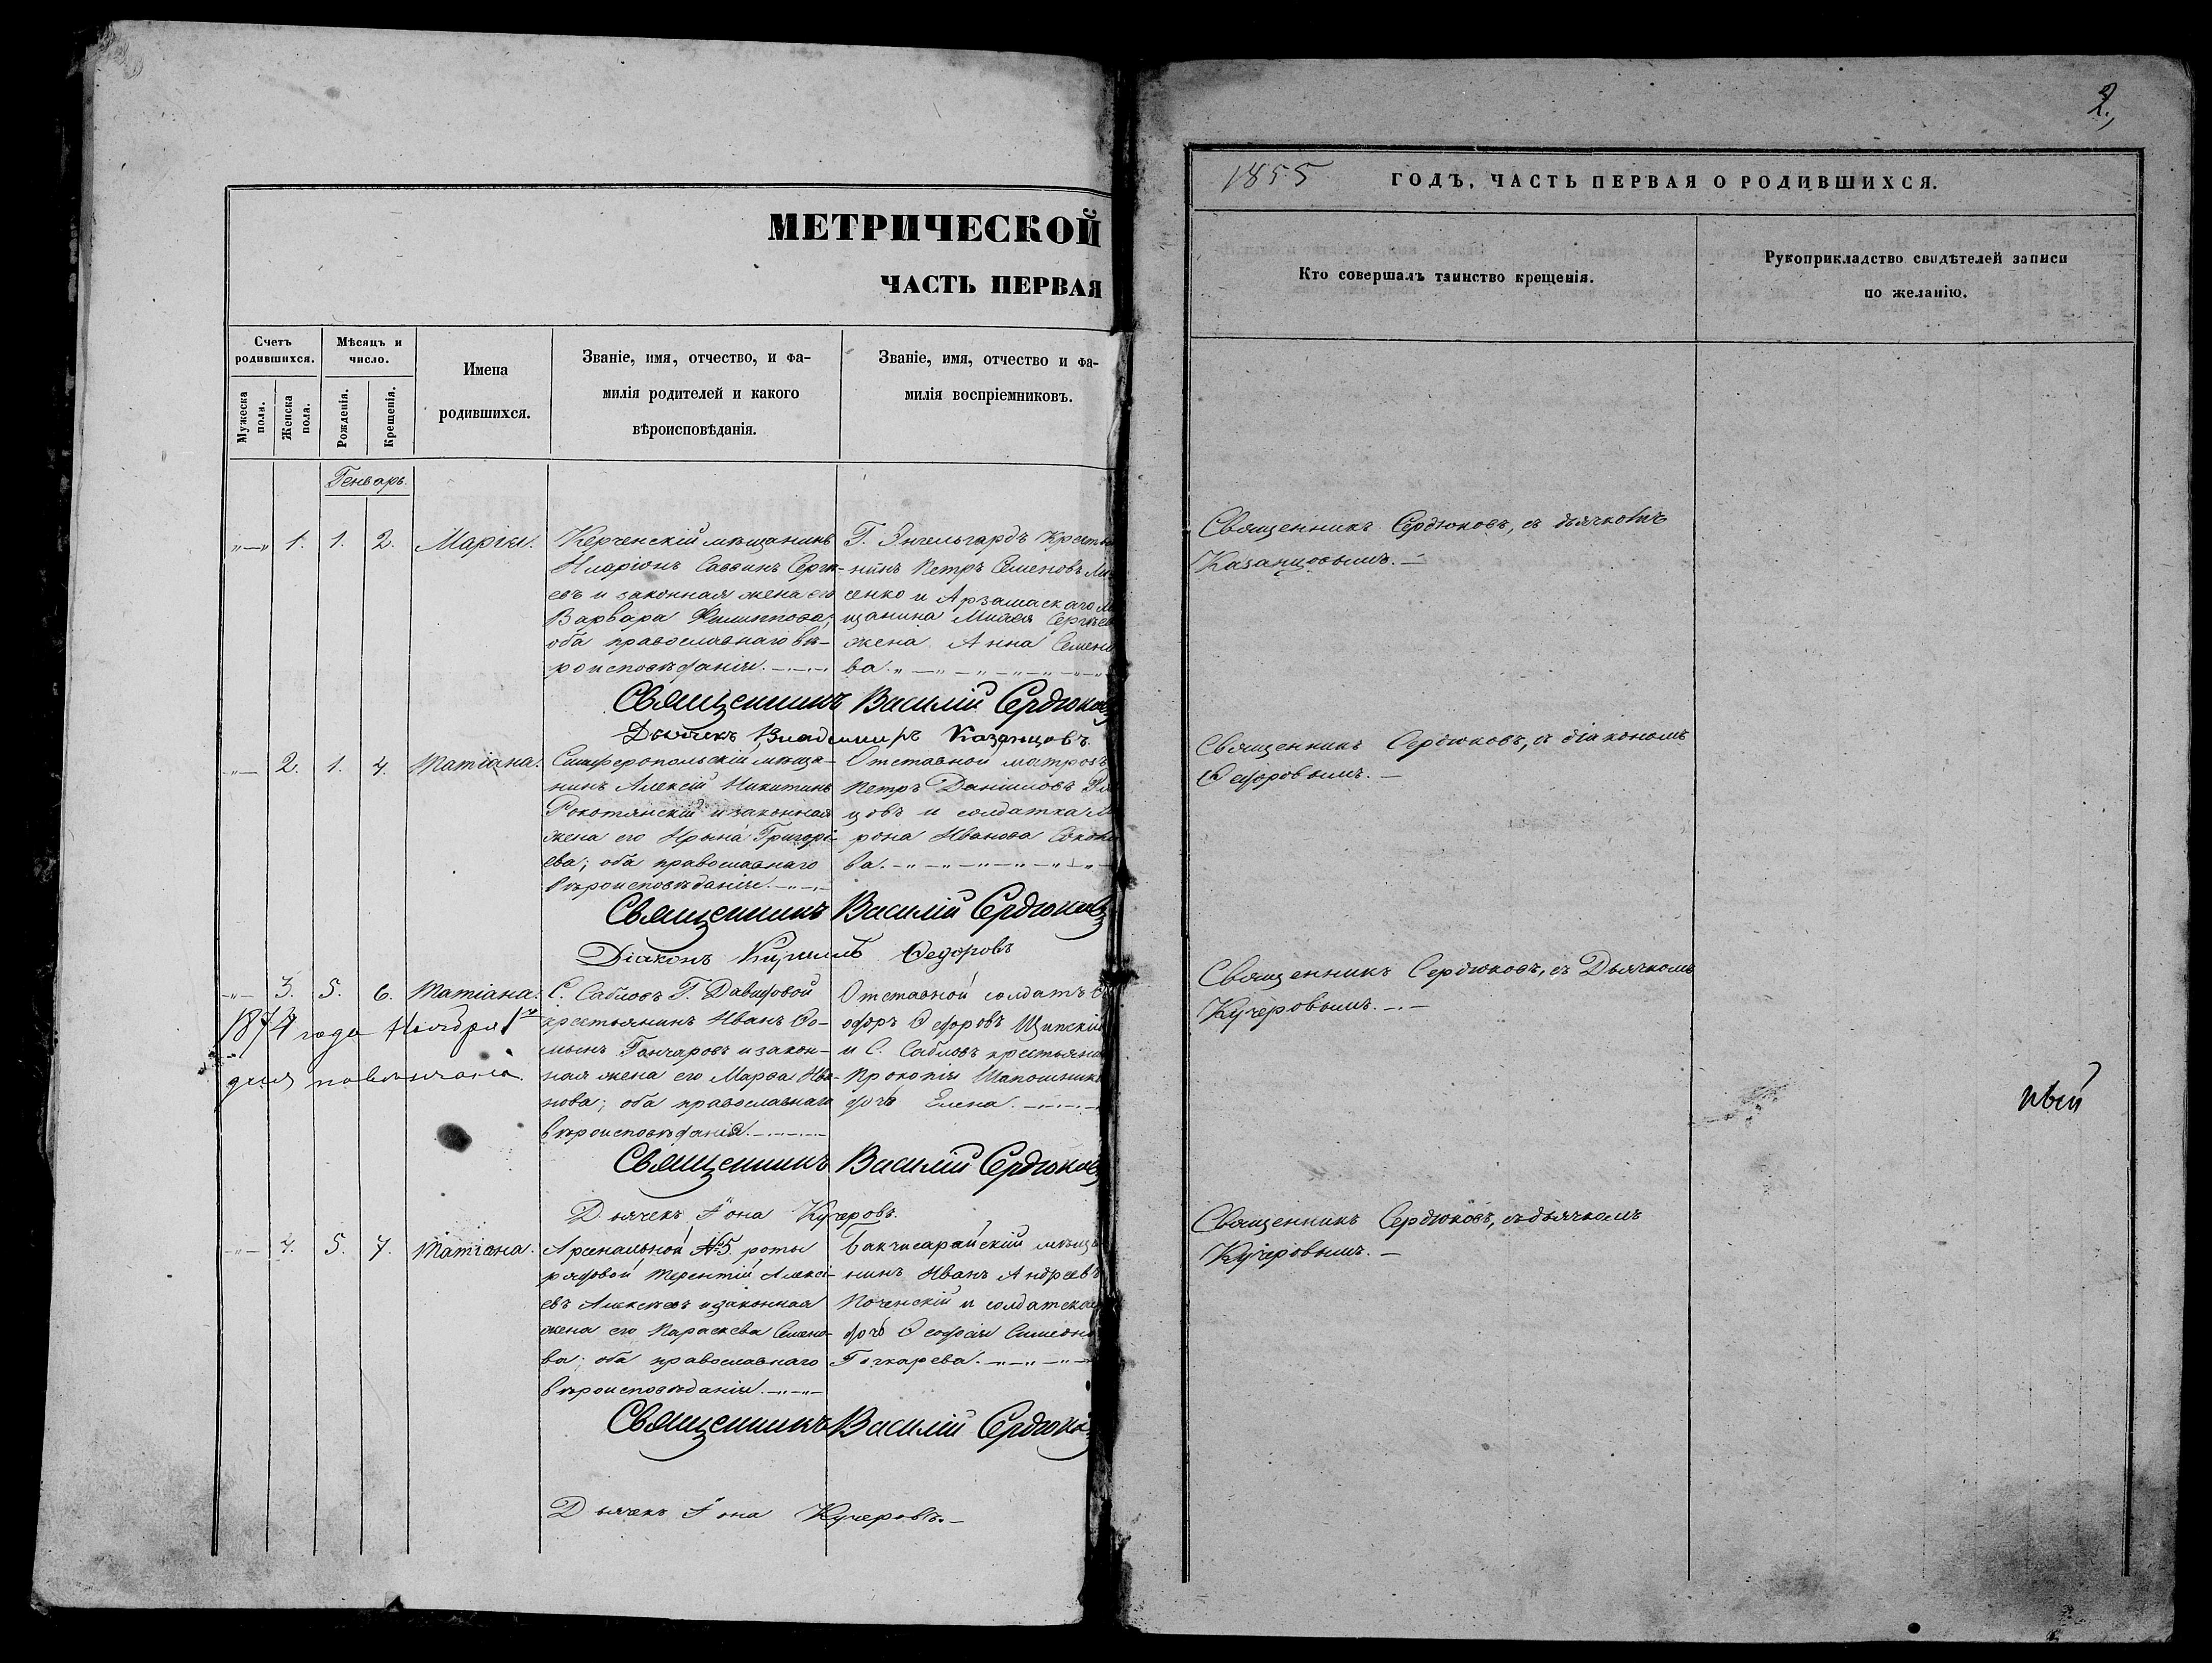 МЕТРИЧЕСКОЙ
ЧАСТЬ ПЕРВАЯ
Счетъ родившихся.
Мужеска пола.
Женска пола.
Мѣсяцъ и число.
Рожденія.
Крещенія.
Имена
родившихся.
Званіе, имя, отчество, и фа-
милія родителей и какого
вѣроисповѣданія.
Званіе, имя, отчество и фа-
милія воспріемниковъ.
Генварь.
1. 1. 2. Марія.
Керченскій мѣщанинъ
Иларіонъ Саввинъ Серги-
евъ и законная жена его
Варвара Филиппова;
оба православнаго вѣ-
роисповѣданія.
Г. Энгельгардъ Кресть
нинъ Петръ Семеновъ
сенко и Арзамаскаго
щанина
жена Анна Семено
ва.
Священникъ Василій Сердюковъ
Дьячекъ Владимиръ Казанцовъ.
2. 1. 4. Татіана.
Симферопольскій мѣща-
нинъ Алексій Никитинъ
Рокотянскій и законная
жена его Ирына Григорі-
ева; оба православнаго
вѣроисповѣданія.
Отставной матросъ
Петръ Даниловъ
цовъ и солдатка
рона Иванова
ва.
Священникъ Василій Сердюковъ
Діаконъ Кириллъ Ѳедоровъ
3. 5. 6. Татіана.
1874 года Ноября
дня повѣнчана
С. Сабловъ Г. Давыдовой
крестьянинъ Иванъ Ѳо-
минъ Гончаровъ и закон-
ная жена его Марѳа Ива-
нова; оба православнаго
вѣроисповѣданія.
Отставной солдатъ Ѳе
одоръ Ѳедоровъ Щипскій
и С. Сабловъ крестьяни
Прокопія Шапошник
дочь Елена.
Священникъ Василій Сердюковъ
Дьячекъ Іона Кучеровъ.
4. 5. 7. Татіана.
Арсенальной №5. роты
рядовой Терентій Алексі-
евъ Алексѣевъ и законная
жена его Параскева Семено-
ва; оба православнаго
вѣроисповѣданія.
Бакчисарайскій мѣща
нинъ Иванъ Андреевъ
Поченскій и солдатская
дочь Ѳеодосія Симеоно
Гочкарева.
Священникъ Василій Сердюковъ
Дьячекъ Іона Кучеровъ.
2.
1855 ГОДЪ, ЧАСТЬ ПЕРВАЯ О РОДИВШИХСЯ.
Кто совершалъ таинство крещенія.
Рукоприкладство свидѣтелей записи
по желанію.
Священникъ Сердюковъ, съ дьячкомъ
Казанцовымъ.
Священникъ Сердюковъ, съ діакономъ
Ѳедоровымъ.
Священникъ Сердюковъ, съ Дьячкомъ
Кучеровымъ.
Священникъ Сердюковъ, съ дьячкомъ
Кучеровымъ.